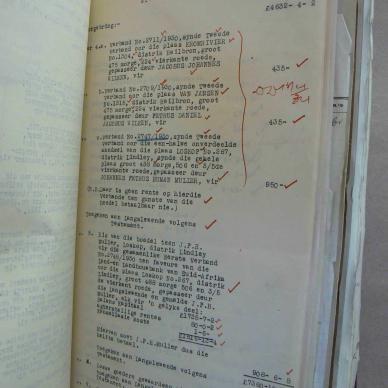 £4632- 4- 2
Vergoeding:-
verband No.2711/1930, synde Tweede
verband oor die plaas KROMRIVIER
No.1304, distrik Heilbron, groot
475 morge, 224 vierkante roede,
gepasseer deur JACOBUS JOHANNES
WILKEN, vir
435-
b. verband No.2709/1930, synde Tweede
verband oor die plaas VAN JANSEN
No.1315, distrik Heilbron, groot
475 morge, 224 vierkante roede,
gepasseer deur PETRUS DANIEL
JACOBUS WILKEN, vir
435-
c. verband No.2747/1930, synde Tweede
verband oor die een-halwe onverdeelde
aandeel van die plaas LOSKOP No.267,
distrik Lindley, synde die gehele
plaas groot 438 morge, 506 en 3/5de
vierkante roede, gepasseer deur
JOHANNES PETRUS HUMAN MULLER, vir
950-
(N.B. Daar is geen rente op hierdie
verbande ten gunste van die
boedel betaalbaar nie.)
Toegeken aan langslewende volgens
testament.
Eis van die boedel teen J.P.H.
Muller, Loskop, distrik Lindley
vir die gesamentlike Eerste verband
No.2746/1930 ten faveure van die
Land-en Landboubank van Suid-Afrika
oor die plaas Loskop No.267, distrik
Lindley, groot 438 morge 506 en 3/5
de vierkante roede, gepasseer deur
die langslewende en genoemde J.P.H.
Muller, elk vir 'n gelyke deel:
£1738-7-2
60-0-2
1-6-
Hiervan moet J.P.H. Muller dus die
helfte betaal.
908- 6- 8
Toegeken aan langslewende volgens
testament.